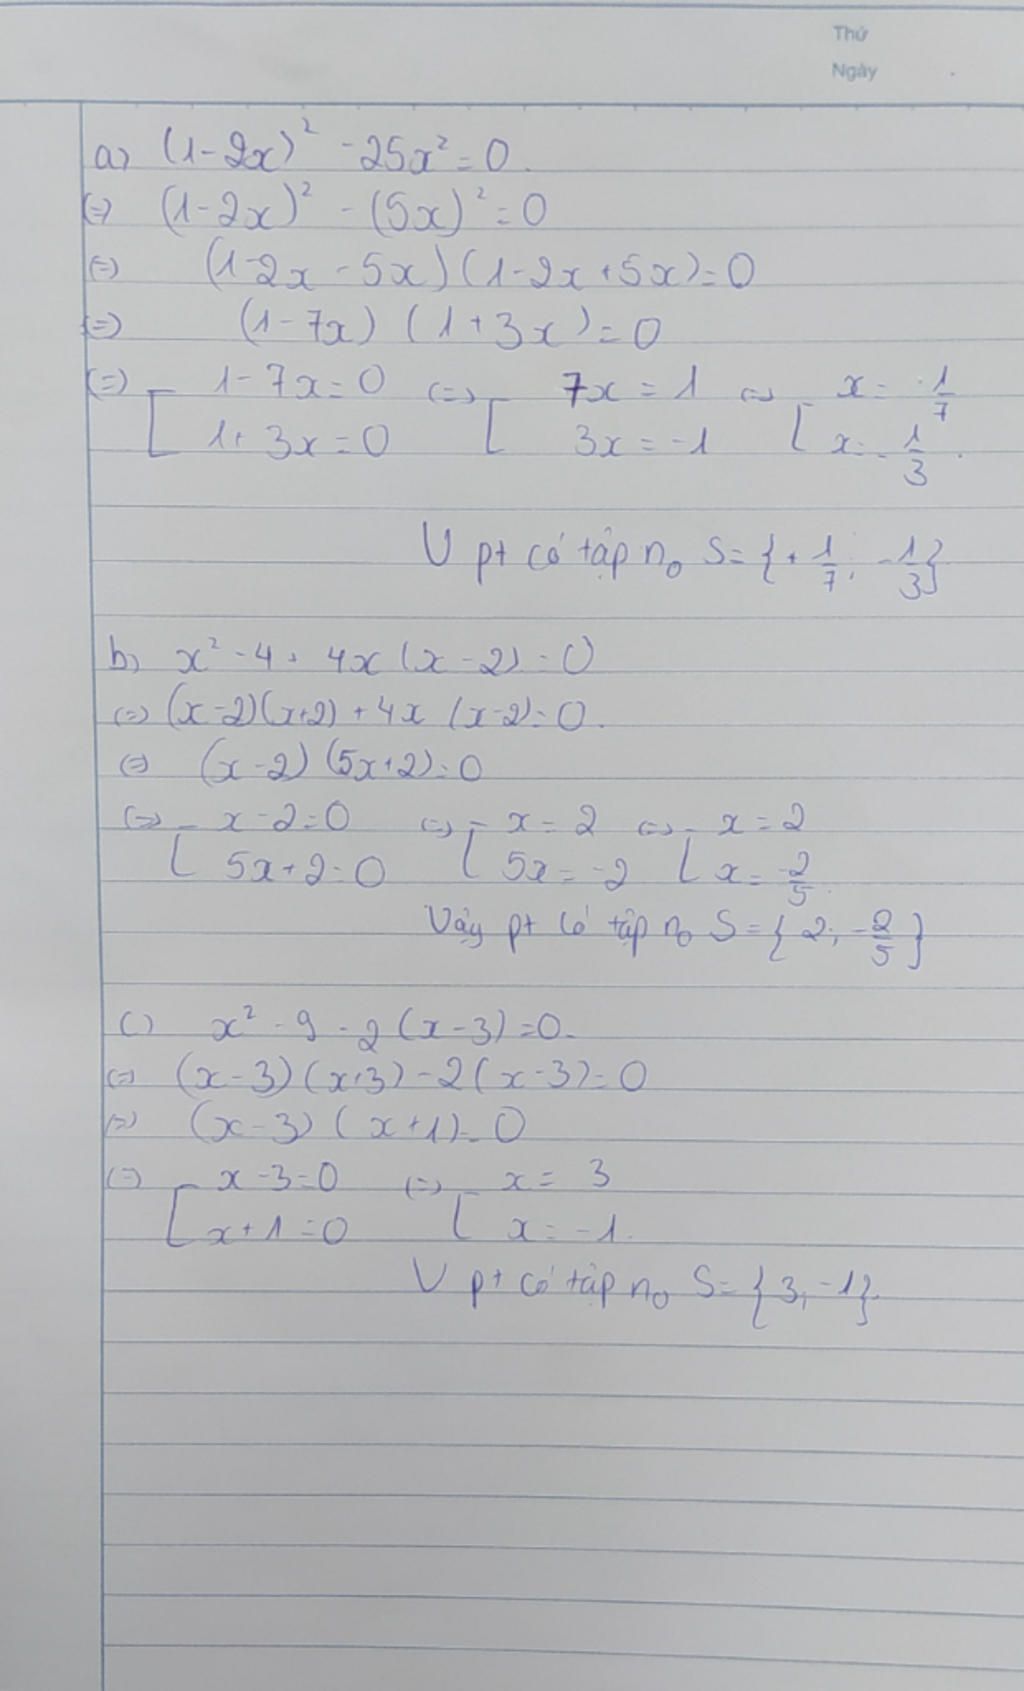 Thứ
Ngày
a) (1-2x)² - 25x² = 0.
(=) (1-2x)² - (5x)² = 0
(=) (1-2x-5x)(1-2x+5x) = 0
(=) (1-7x) (1+3x) = 0
(=) [ 1-7x=0 (=) [ 7x = 1 (=) [ x = 1/7
1+3x=0 3x = -1 x = -1/3.
V pt có tập n₀ S = {+1/7; -1/3}
b) x² - 4 + 4x(x-2) = 0
(=) (x-2)(x+2) + 4x(x-2) = 0.
(=) (x-2)(5x+2) = 0
(=) [ x-2=0 (=) [ x = 2 (=) [ x = 2
5x+2=0 5x = -2 x = -2/5.
Vậy pt có tập n₀ S = {2; -2/5}
c) x² - 9 - 2(x-3) = 0.
(=) (x-3)(x+3) - 2(x-3) = 0
(=) (x-3)(x+1) = 0
(=) [ x-3=0 (=) [ x = 3
x+1=0 x = -1.
V pt có tập n₀ S = {3, -1}.